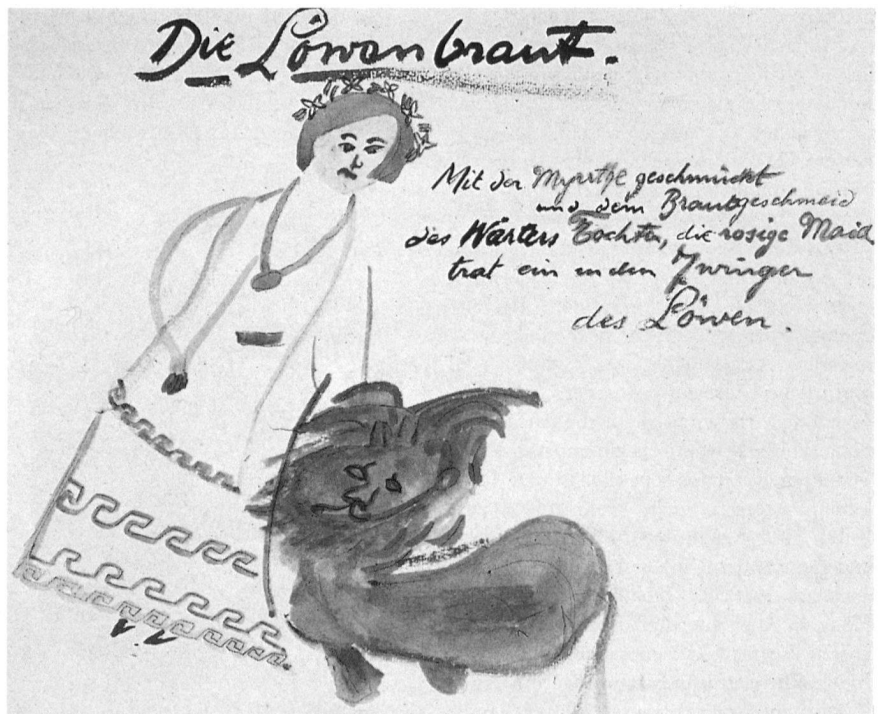 Die Löwenbraut.
Mit der Myrrthe geschmückt
und dem Brautgeschmeid
des Wärters Tochter, die rosige Maid
trat ein in den Zwinger
des Löwen.